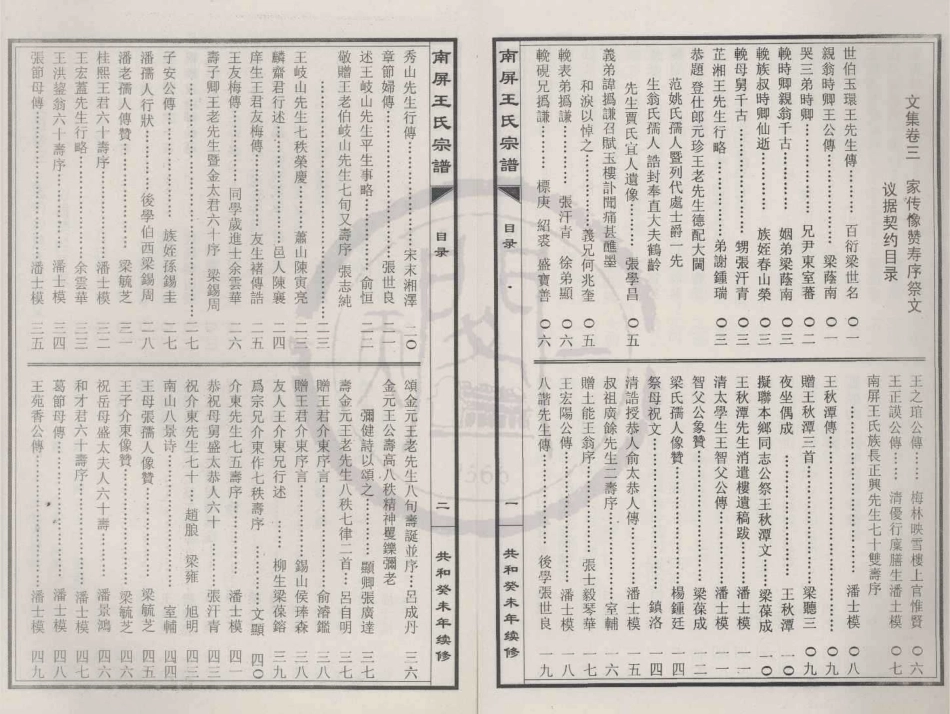 文集卷三　家传像赞寿序祭文
议据契约目录
世伯玉環王先生傳⋯⋯百衍梁世名　〇一
親翁時卿王公傳⋯⋯梁蔭南　〇一
哭三弟時卿⋯⋯兄尹東室蕃　〇二
輓時卿親翁千古⋯⋯姻弟梁蔭南　〇三
輓族叔時卿仙逝⋯⋯族姪春山榮　〇三
輓母舅千古⋯⋯甥張汗青　〇三
芷湘王先生行略⋯⋯弟謝鍾瑞　〇三
恭題 登仕郎元珍王老先生德配大閫
范姚氏孺人暨列代處士爵一先
生翁氏孺人 誥封奉直大夫鶴齡
先生賈氏宜人遺像⋯⋯張學昌　〇五
義弟諱撝謙召賦玉樓訃聞痛甚醮墨
和淚以悼之⋯⋯義兄何兆奎　〇五
輓表弟撝謙⋯⋯張汗青　徐弟顯
輓硯兄撝謙⋯⋯標庚　紹裘　盛寶善　〇六
王之琯公傳⋯⋯梅林映雪樓上官惟賢　〇六
王正謨公傳⋯⋯清優行廩膳生潘士模　〇七
南屏王氏族長正興先生七十雙壽序
⋯⋯潘士模　〇八
王秋潭傳⋯⋯
贈王秋潭三首⋯⋯梁聽三　〇九
夜坐偶成⋯⋯王秋潭　一〇
擬聯本鄉同志公祭王秋潭文⋯⋯梁葆成　一〇
王秋潭先生消遣樓遺稿跋⋯⋯潘士模　一一
清太學生王智父公傳⋯⋯潘士模　一一
智父公象贊⋯⋯梁葆成　一二
梁氏孺人像贊⋯⋯楊鍾廷　一四
祭母祝文⋯⋯鎮洛　一四
清誥授恭人俞太恭人傳⋯⋯潘士模　一五
叔祖廣餘先生二壽序⋯⋯室輔　一六
贈土能王翁序⋯⋯張士毅琴華　一七
王宏陽公傳⋯⋯潘士模　一八
八諧先生傳⋯⋯後學張世良　一九
南屏王氏宗譜
目录
一
共和癸未年续修
南屏王氏宗譜
目录
二
共和癸未年续修
秀山先生行傳⋯⋯宋末湘澤　二〇
章節婦傳⋯⋯張世良　二一
述王岐山先生平生事略⋯⋯俞恒　二二
敬贈王老伯岐山先生七旬又壽序　張志純
⋯⋯二三
王岐山先生七秩榮慶⋯⋯蕭山陳寅亮　二三
麟齋君行述⋯⋯邑人陳襄　二四
庠生王君友梅傳⋯⋯友生褚傳誥　二五
王友梅傳⋯⋯同學歲進士余雲華　二六
壽子卿王老先生暨金太君六十序　梁錫周
⋯⋯二七
子安公傳⋯⋯族姪孫錫圭　二七
潘孺人行狀⋯⋯後學伯西梁錫周　二八
潘老孺人傳贊⋯⋯梁毓芝　三一
桂熙王君六十壽序⋯⋯潘士模　三二
王宏蓋先生行略⋯⋯余雲華　三三
王洪鋆翁六十壽序⋯⋯潘士模　三四
張節母傳⋯⋯潘士模　三五
頌金元王老先生八旬壽誕並序⋯⋯呂成丹　三六
金元王公壽高八秩精神矍鑠彌老
彌健詩以頌之⋯⋯顯卿張廣達　三七
壽金元王老先生八秩七律二首⋯⋯呂自明　三七
贈王君介東序言⋯⋯俞濬鑑　三八
贈王君介東序言⋯⋯錫山侯瑋森　三八
友人王介東兄行述⋯⋯柳生梁葆鎔　三九
爲宗兄介東作七秩壽序⋯⋯文顯　四〇
介東先生七五壽序⋯⋯潘士模　四一
恭祝母舅盛太恭人六十⋯⋯張汗青　四三
祝介東先生七十⋯⋯趙脤　梁雍　旭明　四三
南山八景诗⋯⋯室輔　四四
王母張孺人像贊⋯⋯梁毓芝　四五
王子介東像贊⋯⋯梁毓芝　四六
祝岳母盛太夫人六十壽⋯⋯潘景鴻　四六
和才君六十壽序⋯⋯潘士模　四七
葛節母傳⋯⋯潘士模　四八
王宛香公傳⋯⋯潘士模　四九